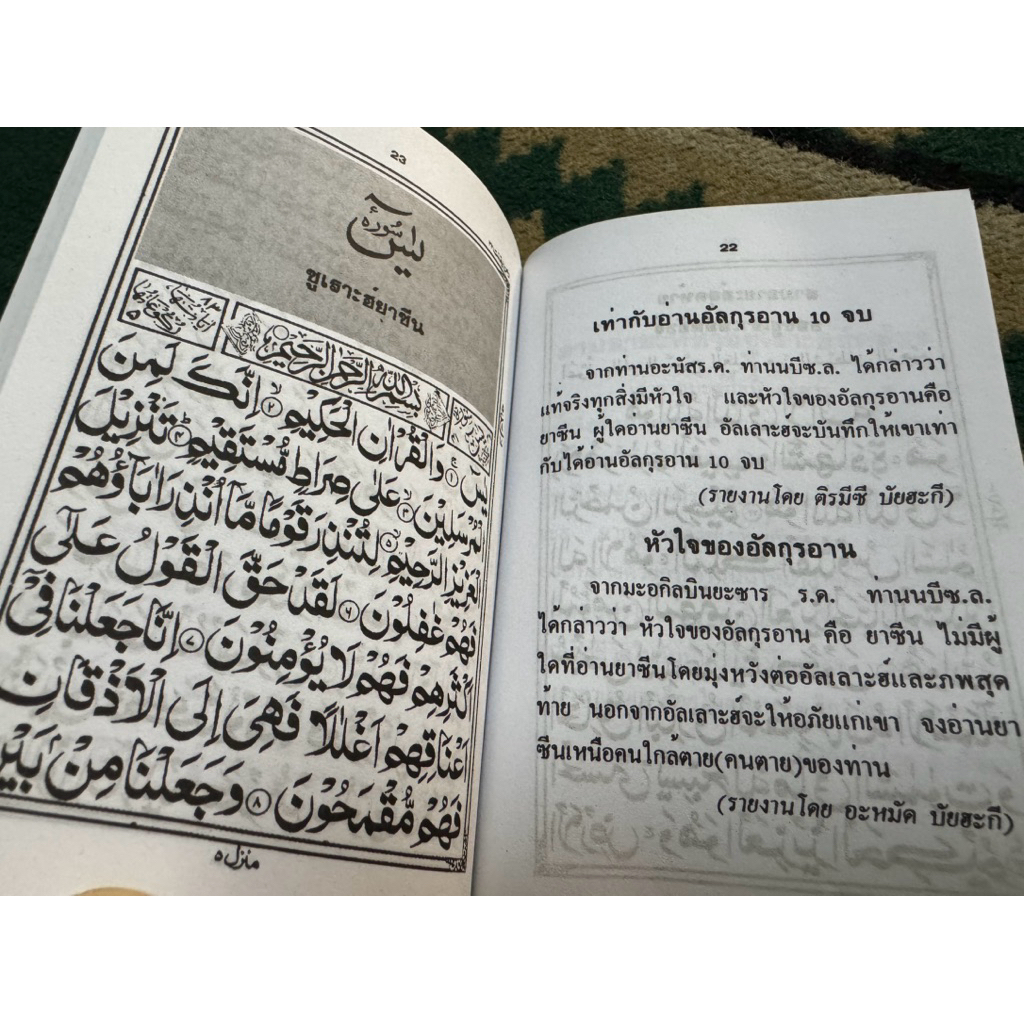 22
เท่ากับอ่านอัลกุรอาน 10 จบ
จากท่านอะนัสร.ด. ท่านนบีซ.ล. ได้กล่าวว่า
แท้จริงทุกสิ่งมีหัวใจ และหัวใจของอัลกุรอานคือ
ยาซีน ผู้ใดอ่านยาซีน อัลเลาะฮ์จะบันทึกให้เขาเท่า
กับได้อ่านอัลกุรอาน 10 จบ
(รายงานโดย ติรมีซี บัยฮะกี)
หัวใจของอัลกุรอาน
จากมะอกิลบินยะซาร ร.ด. ท่านนบีซ.ล.
ได้กล่าวว่า หัวใจของอัลกุรอาน คือ ยาซีน ไม่มีผู้
ใดที่อ่านยาซีนโดยมุ่งหวังต่ออัลเลาะฮ์และภพสุด
ท้าย นอกจากอัลเลาะฮ์จะให้อภัยแก่เขา จงอ่านยา
ซีนเหนือคนใกล้ตาย(คนตาย)ของท่าน
(รายงานโดย อะหมัด บัยฮะกี)
23
سُورَةُ يٰسٓ
ซูเราะฮ์ยาซีน
بِسْمِ اللهِ الرَّحْمٰنِ الرَّحِيْمِ
يٰسٓ ۚ ۱ وَالْقُرْاٰنِ الْحَكِيْمِ ۙ ۲ اِنَّكَ لَمِنَ
الْمُرْسَلِيْنَ ۙ ۳ عَلٰى صِرَاطٍ مُّسْتَقِيْمٍ ؕ ۴ تَنْزِيْلَ
الْعَزِيْزِ الرَّحِيْمِ ۙ ۵ لِتُنْذِرَ قَوْمًا مَّاۤ اُنْذِرَ اٰبَآؤُهُمْ
فَهُمْ غٰفِلُوْنَ ۶ لَقَدْ حَقَّ الْقَوْلُ عَلٰۤى
اَكْثَرِهِمْ فَهُمْ لَا يُؤْمِنُوْنَ ۷ اِنَّا جَعَلْنَا فِيْۤ
اَعْنَاقِهِمْ اَغْلٰلًا فَهِيَ اِلَى الْاَذْقَانِ
فَهُمْ مُّقْمَحُوْنَ ۸ وَجَعَلْنَا مِنْۢ بَيْنِ
منزل ۵